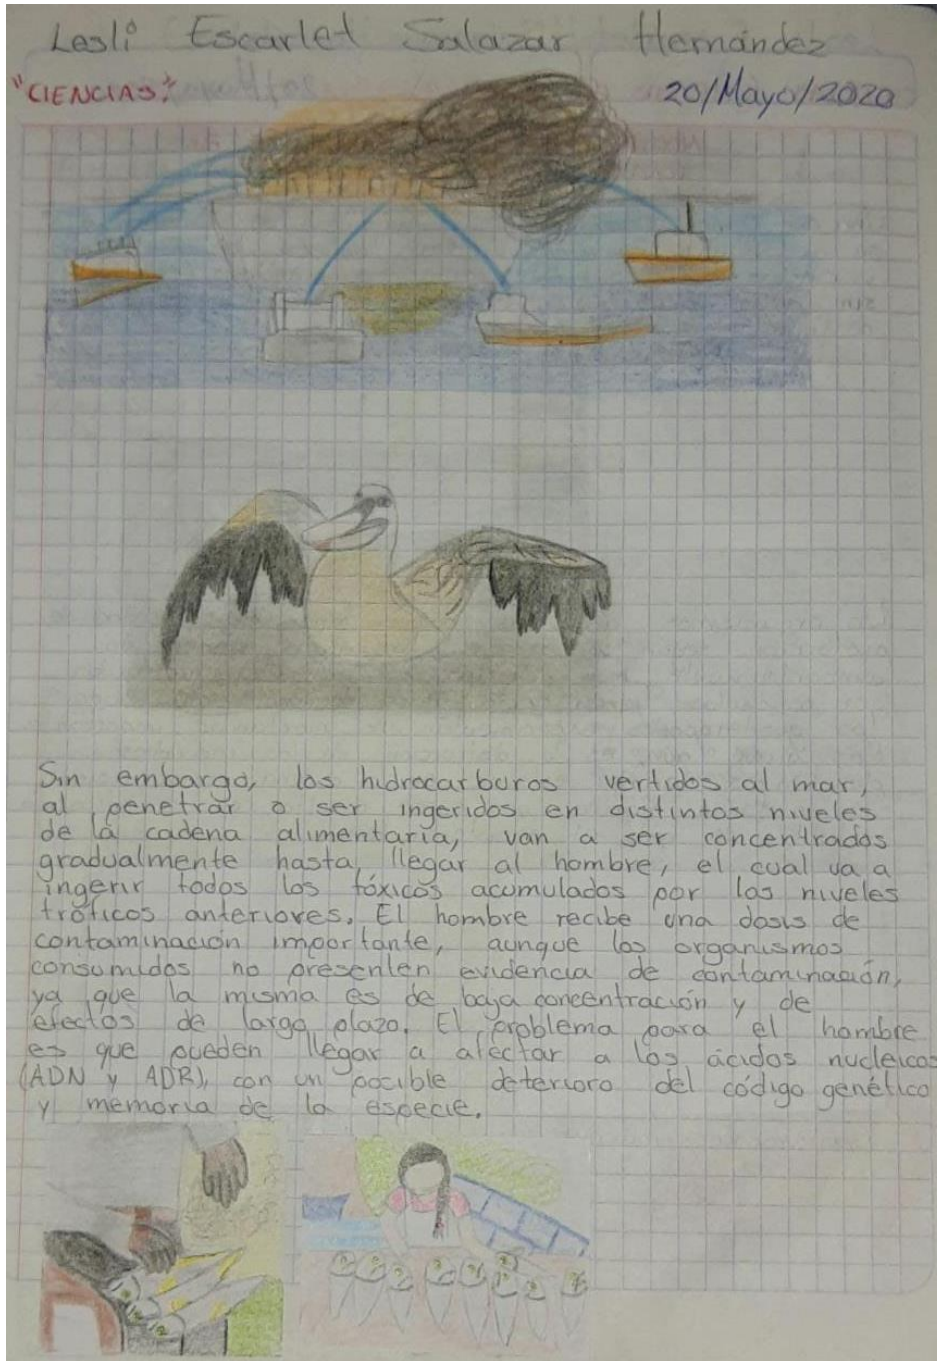 Lesli Escarlet Salazar Hernández
"CIENCIAS"
20/Mayo/2020
Sin embargo, los hidrocarburos vertidos al mar,
al penetrar o ser ingeridos en distintos niveles
de la cadena alimentaria, van a ser concentrados
gradualmente hasta llegar al hombre, el cual va a
ingerir todos los tóxicos acumulados por los niveles
tróficos anteriores. El hombre recibe una dosis de
contaminación importante, aunque los organismos
consumidos no presenten evidencia de contaminación,
ya que la misma es de baja concentración y de
efectos de largo plazo. El problema para el hombre
es que pueden llegar a afectar a los ácidos nucleicos
(ADN y ADR), con un pocible deterioro del código genético
y memoria de la especie.